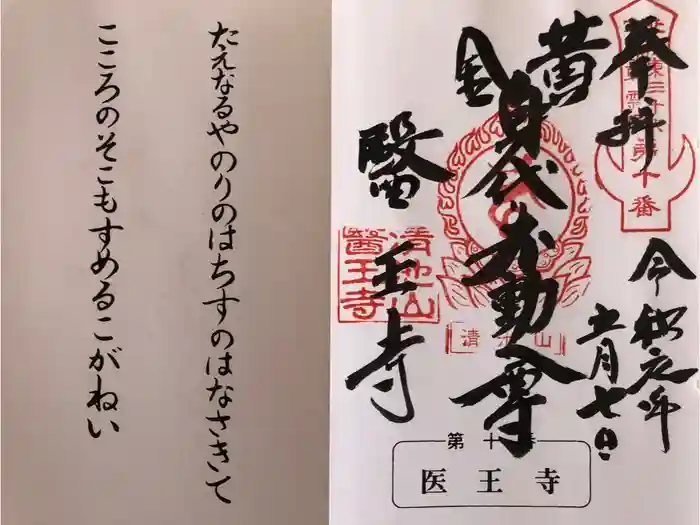 たえなるやのりのはちすのはなさきて
こころのそこもすめるこがねい
奉拝
令和元年
五月七日
黄金
身代り不動尊
醫王寺
第十番
清池山
醫王寺
清池山
第十番
医王寺